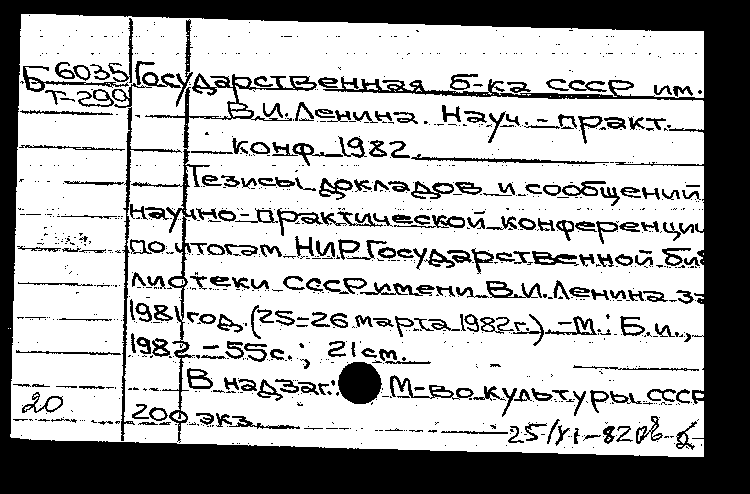 Б 6035 Государственная б-ка СССР им.
Т-299
В.И.Ленина. Науч.-практ.
конф. 1982.
Тезисы докладов и сообщений
научно-практической конференции
по итогам НИР Государственной биб
лиотеки СССР имени В.И.Ленина за
1981 год. (25-26 марта 1982г.). -М.: Б.и.,
1982 - 55с.; 21см.
В надзаг.: М-во культуры СССР
20 200 экз.